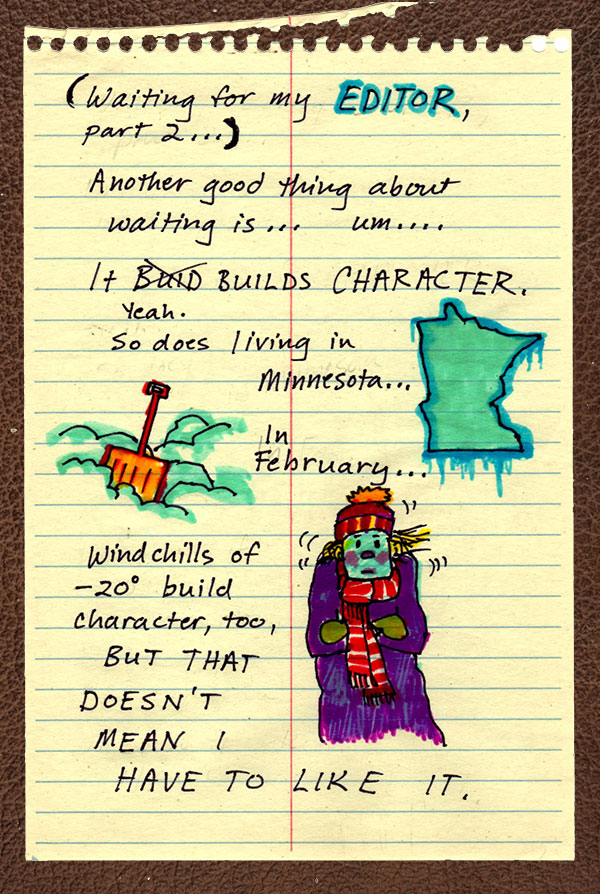 (Waiting for my EDITOR,
part 2...)
Another good thing about
waiting is... um....
It BUID BUILDS CHARACTER.
Yeah.
So does living in
Minnesota...
In
February...
Windchills of
-20° build
character, too,
BUT THAT
DOESN'T
MEAN I
HAVE TO LIKE IT.